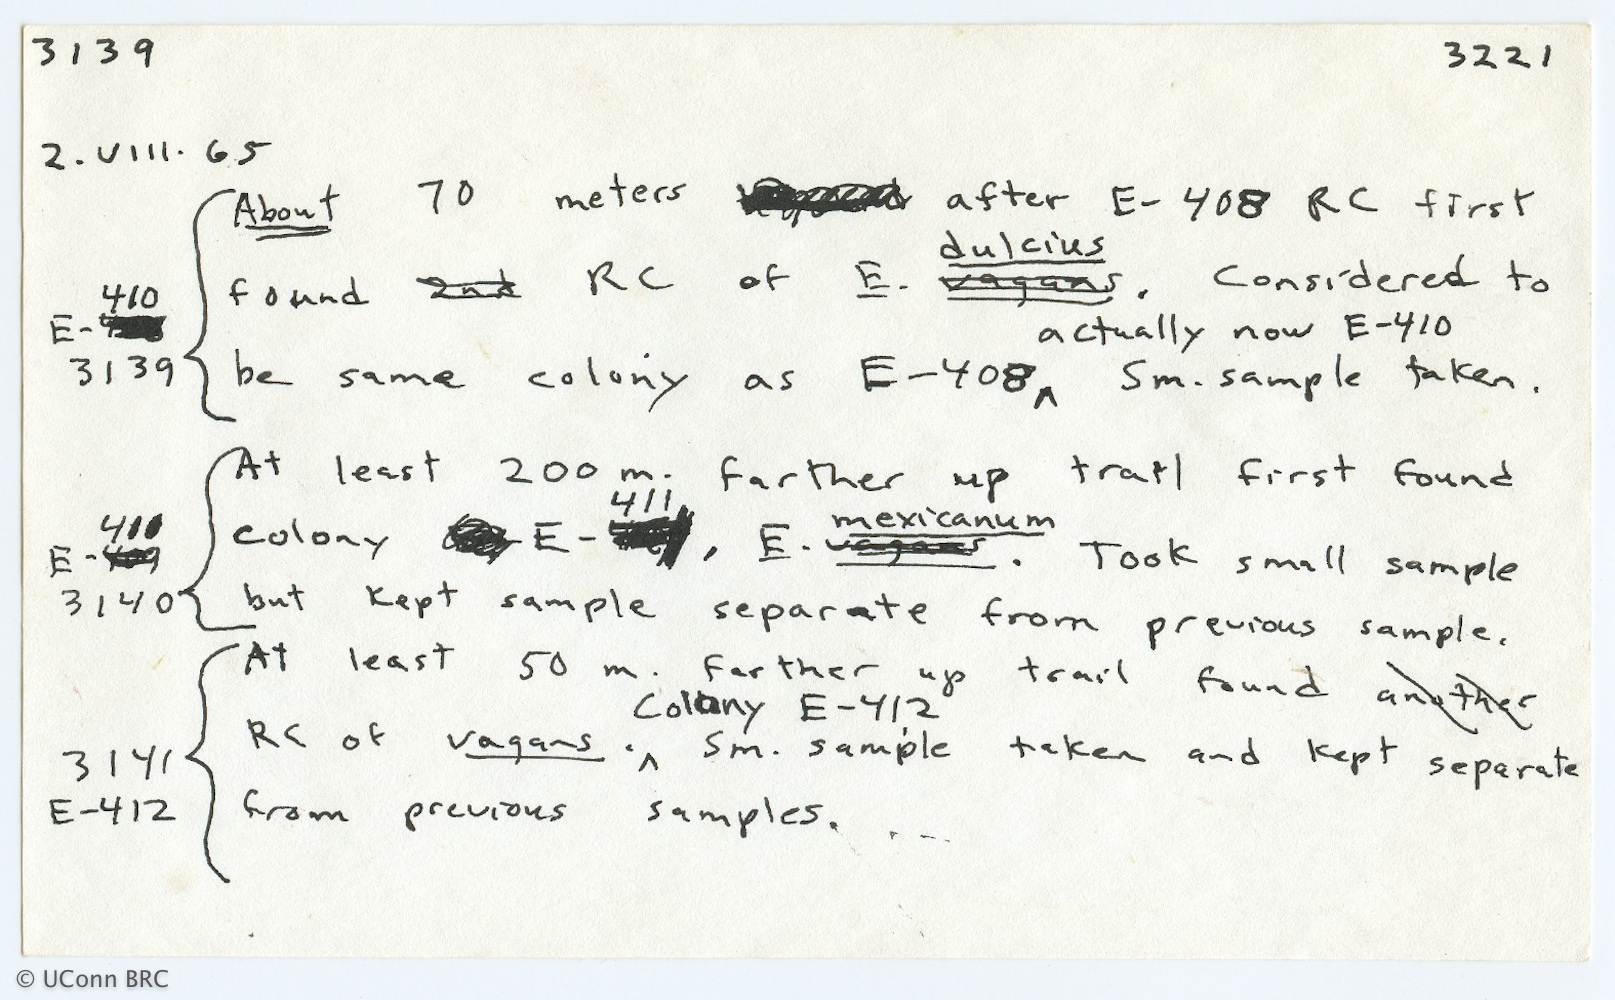 3139 3221
2.VIII.65
About 70 meters after E-408 RC first
dulcius
found 2nd RC of E. vagans. Considered to
410
E-
actually now E-410
3139 be same colony as E-408 ^ Sm. sample taken.
At least 200 m. farther up trail first found
411
411 mexicanum
colony E- , E. vagans. Took small sample
E-409
3140 but kept sample separate from previous sample.
At least 50 m. farther up trail found another
Colony E-412
RC of vagans. ^ Sm. sample taken and kept separate
3141
E-412 from previous samples. ...
© UConn BRC